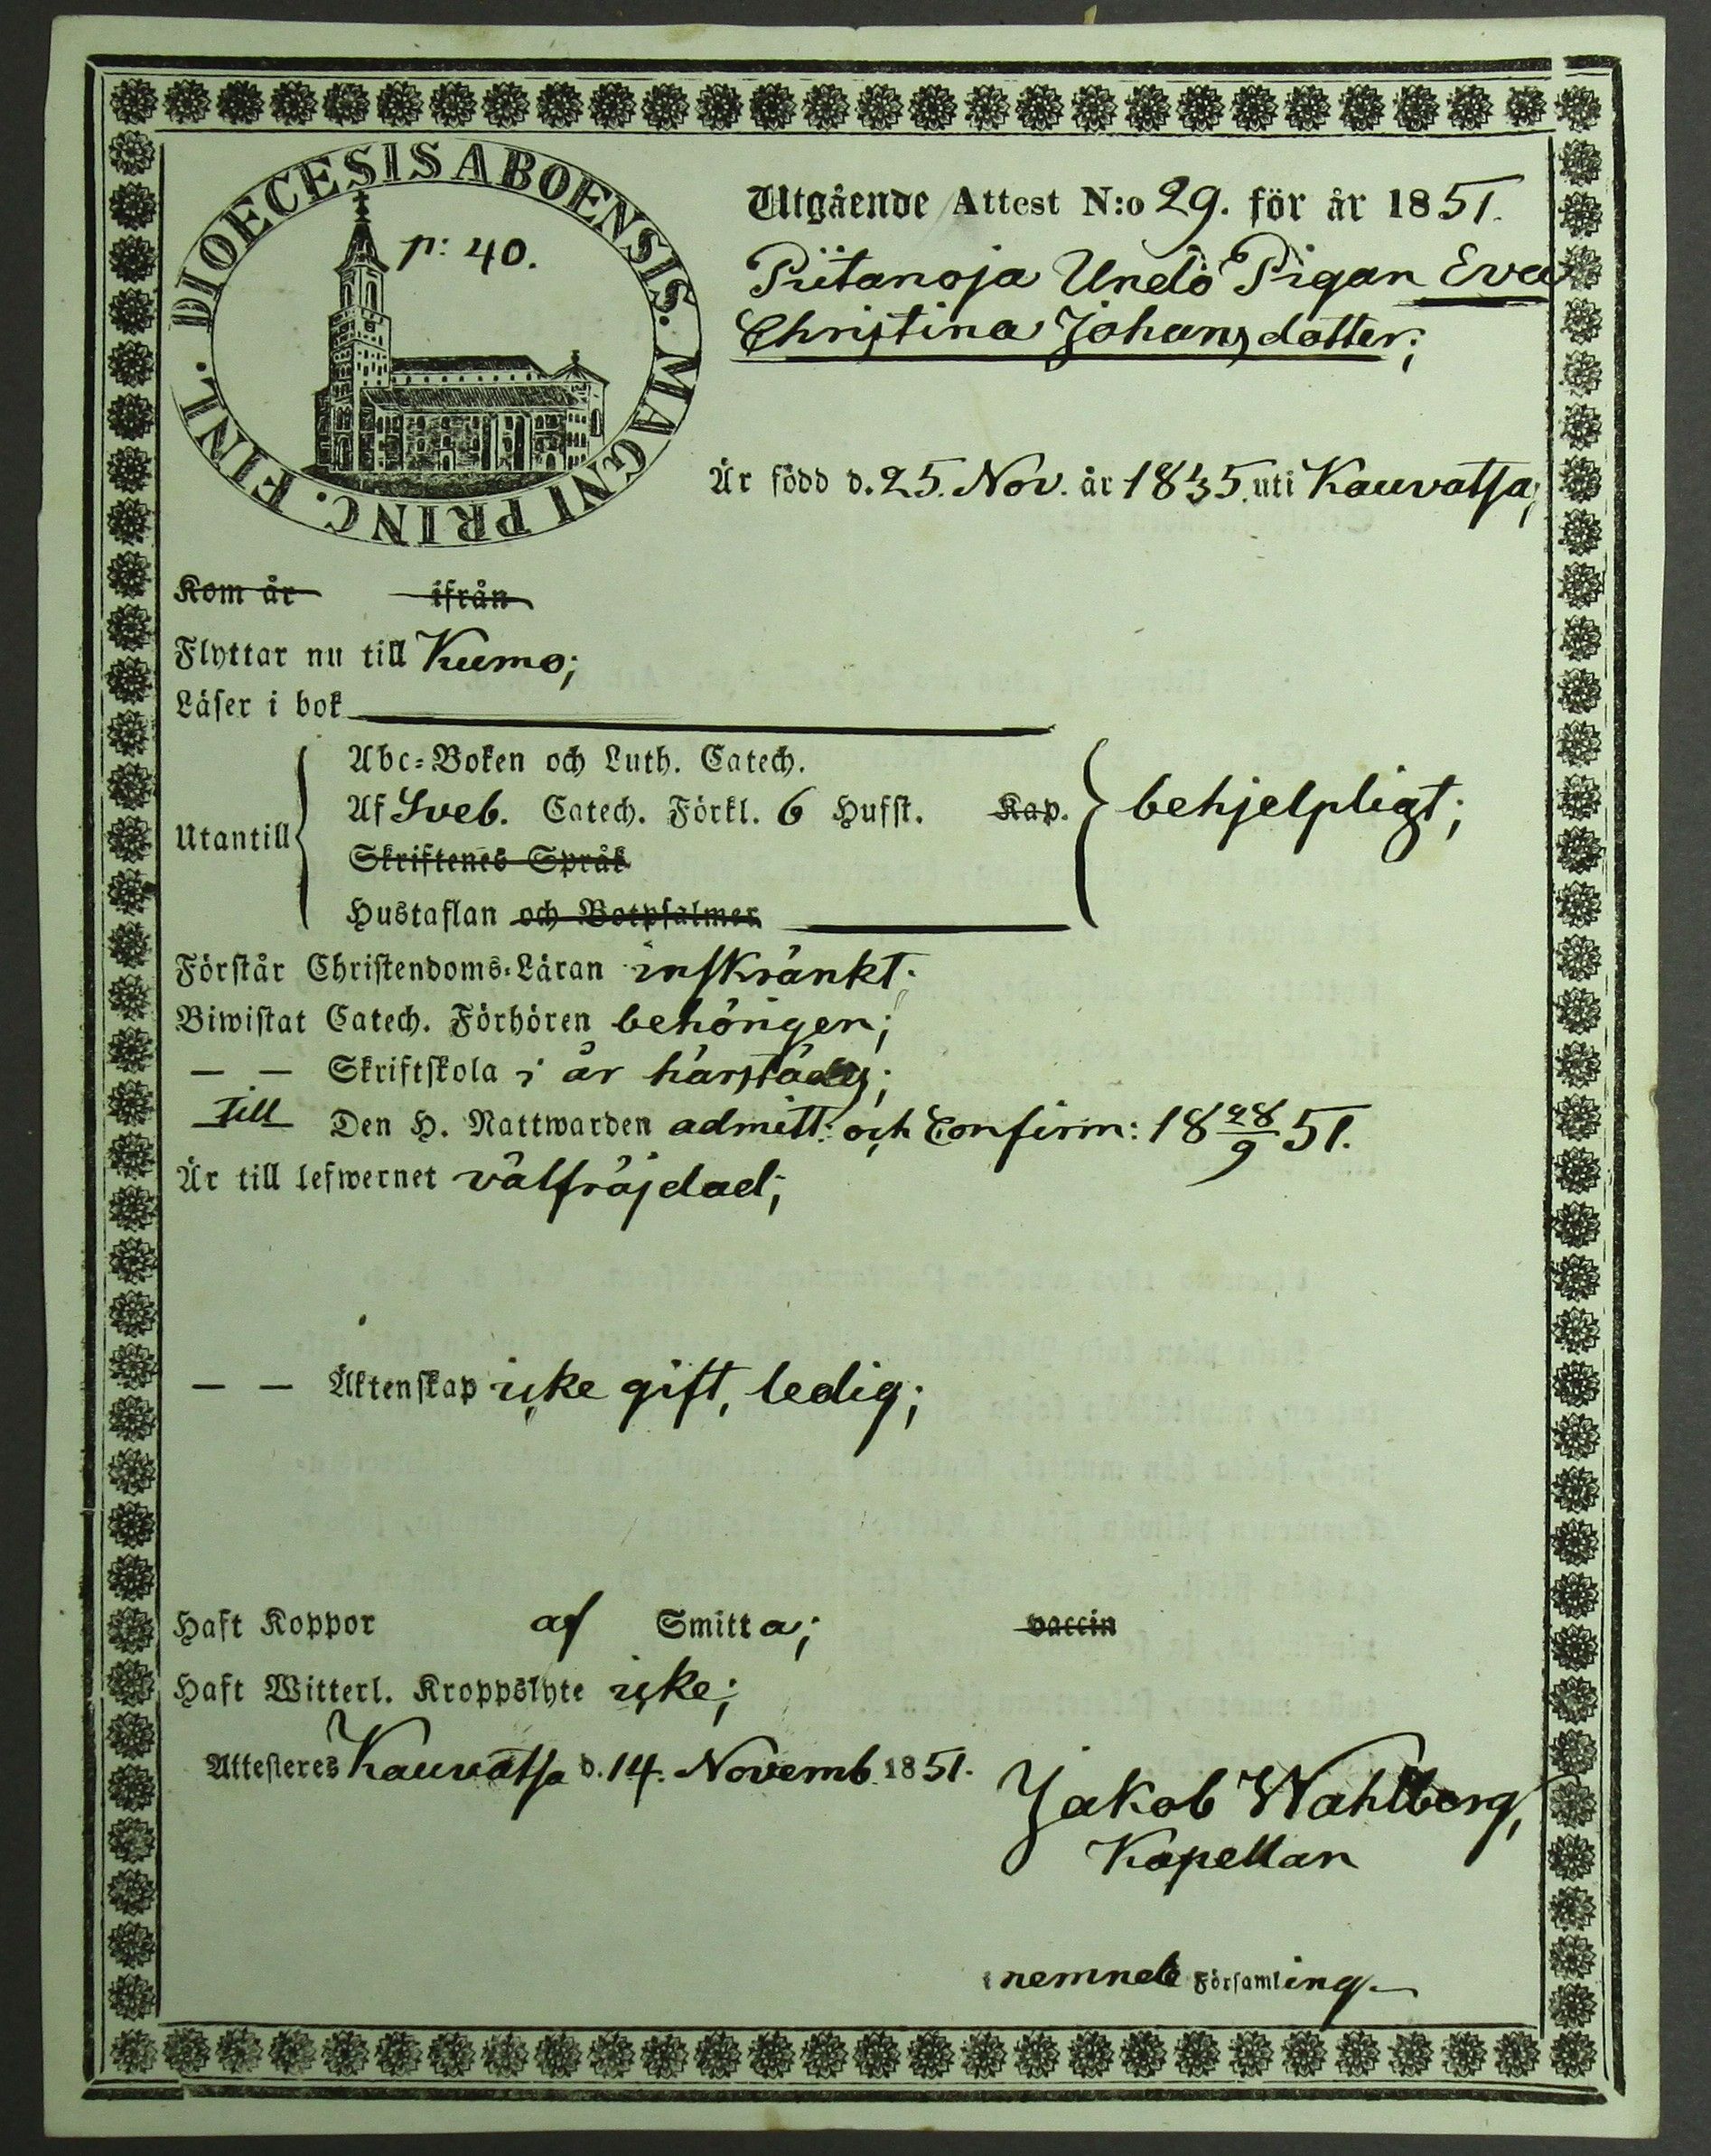 DIOECESIS ABOENSIS. MAGNI PRINC. FINL.
p: 40.
Utgående Attest N:o 29. för år 1851.
Piitanoja Undö Pigan Eva
Christina Johansdotter;
Är född d. 25. Nov. år 1835. uti Kauvatsa;
Kom år ifrån
Flyttar nu till Kumo;
Läser i bok
Utantill
Abc-Boken och Luth. Catech.
Af Sveb. Catech. Förkl. 6 Hufst. Kap.
Skriftenes Språk
Hustaflan och Botpsalmer
behjelpligt;
Förstår Christendoms-Läran inskränkt.
Biwistat Catech. Förhören behörigen;
— — Skriftskola i år härstädes;
till Den H. Nattwarden admitt: och Confirm: 18 28/9 51.
Är till lefwernet välfräjdad;
— — Äktenskap icke gift, ledig;
Haft Koppor af Smitta; vaccin
Haft Witterl. Kroppslyte icke;
Attesteres Kauvatsa d. 14. Novemb. 1851.
Jakob Wahlberg,
Kapellan
i nemnde Församling